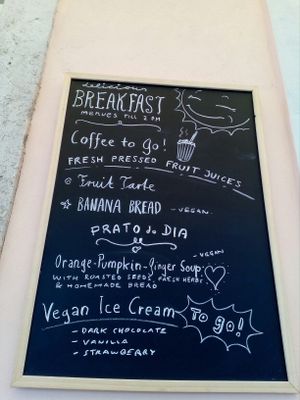 delicious
BREAKFAST
MENUES TILL 2 PM
Coffee to go!
FRESH PRESSED FRUIT JUICES
Fruit Tarte
BANANA BREAD - VEGAN-
PRATO do DIA
Orange-Pumpkin-Ginger Soup - VEGAN
WITH ROASTED SEEDS, FRESH HERBS
& HOMEMADE BREAD
Vegan Ice Cream To go!
- DARK CHOCOLATE
- VANILLA
- STRAWBERRY